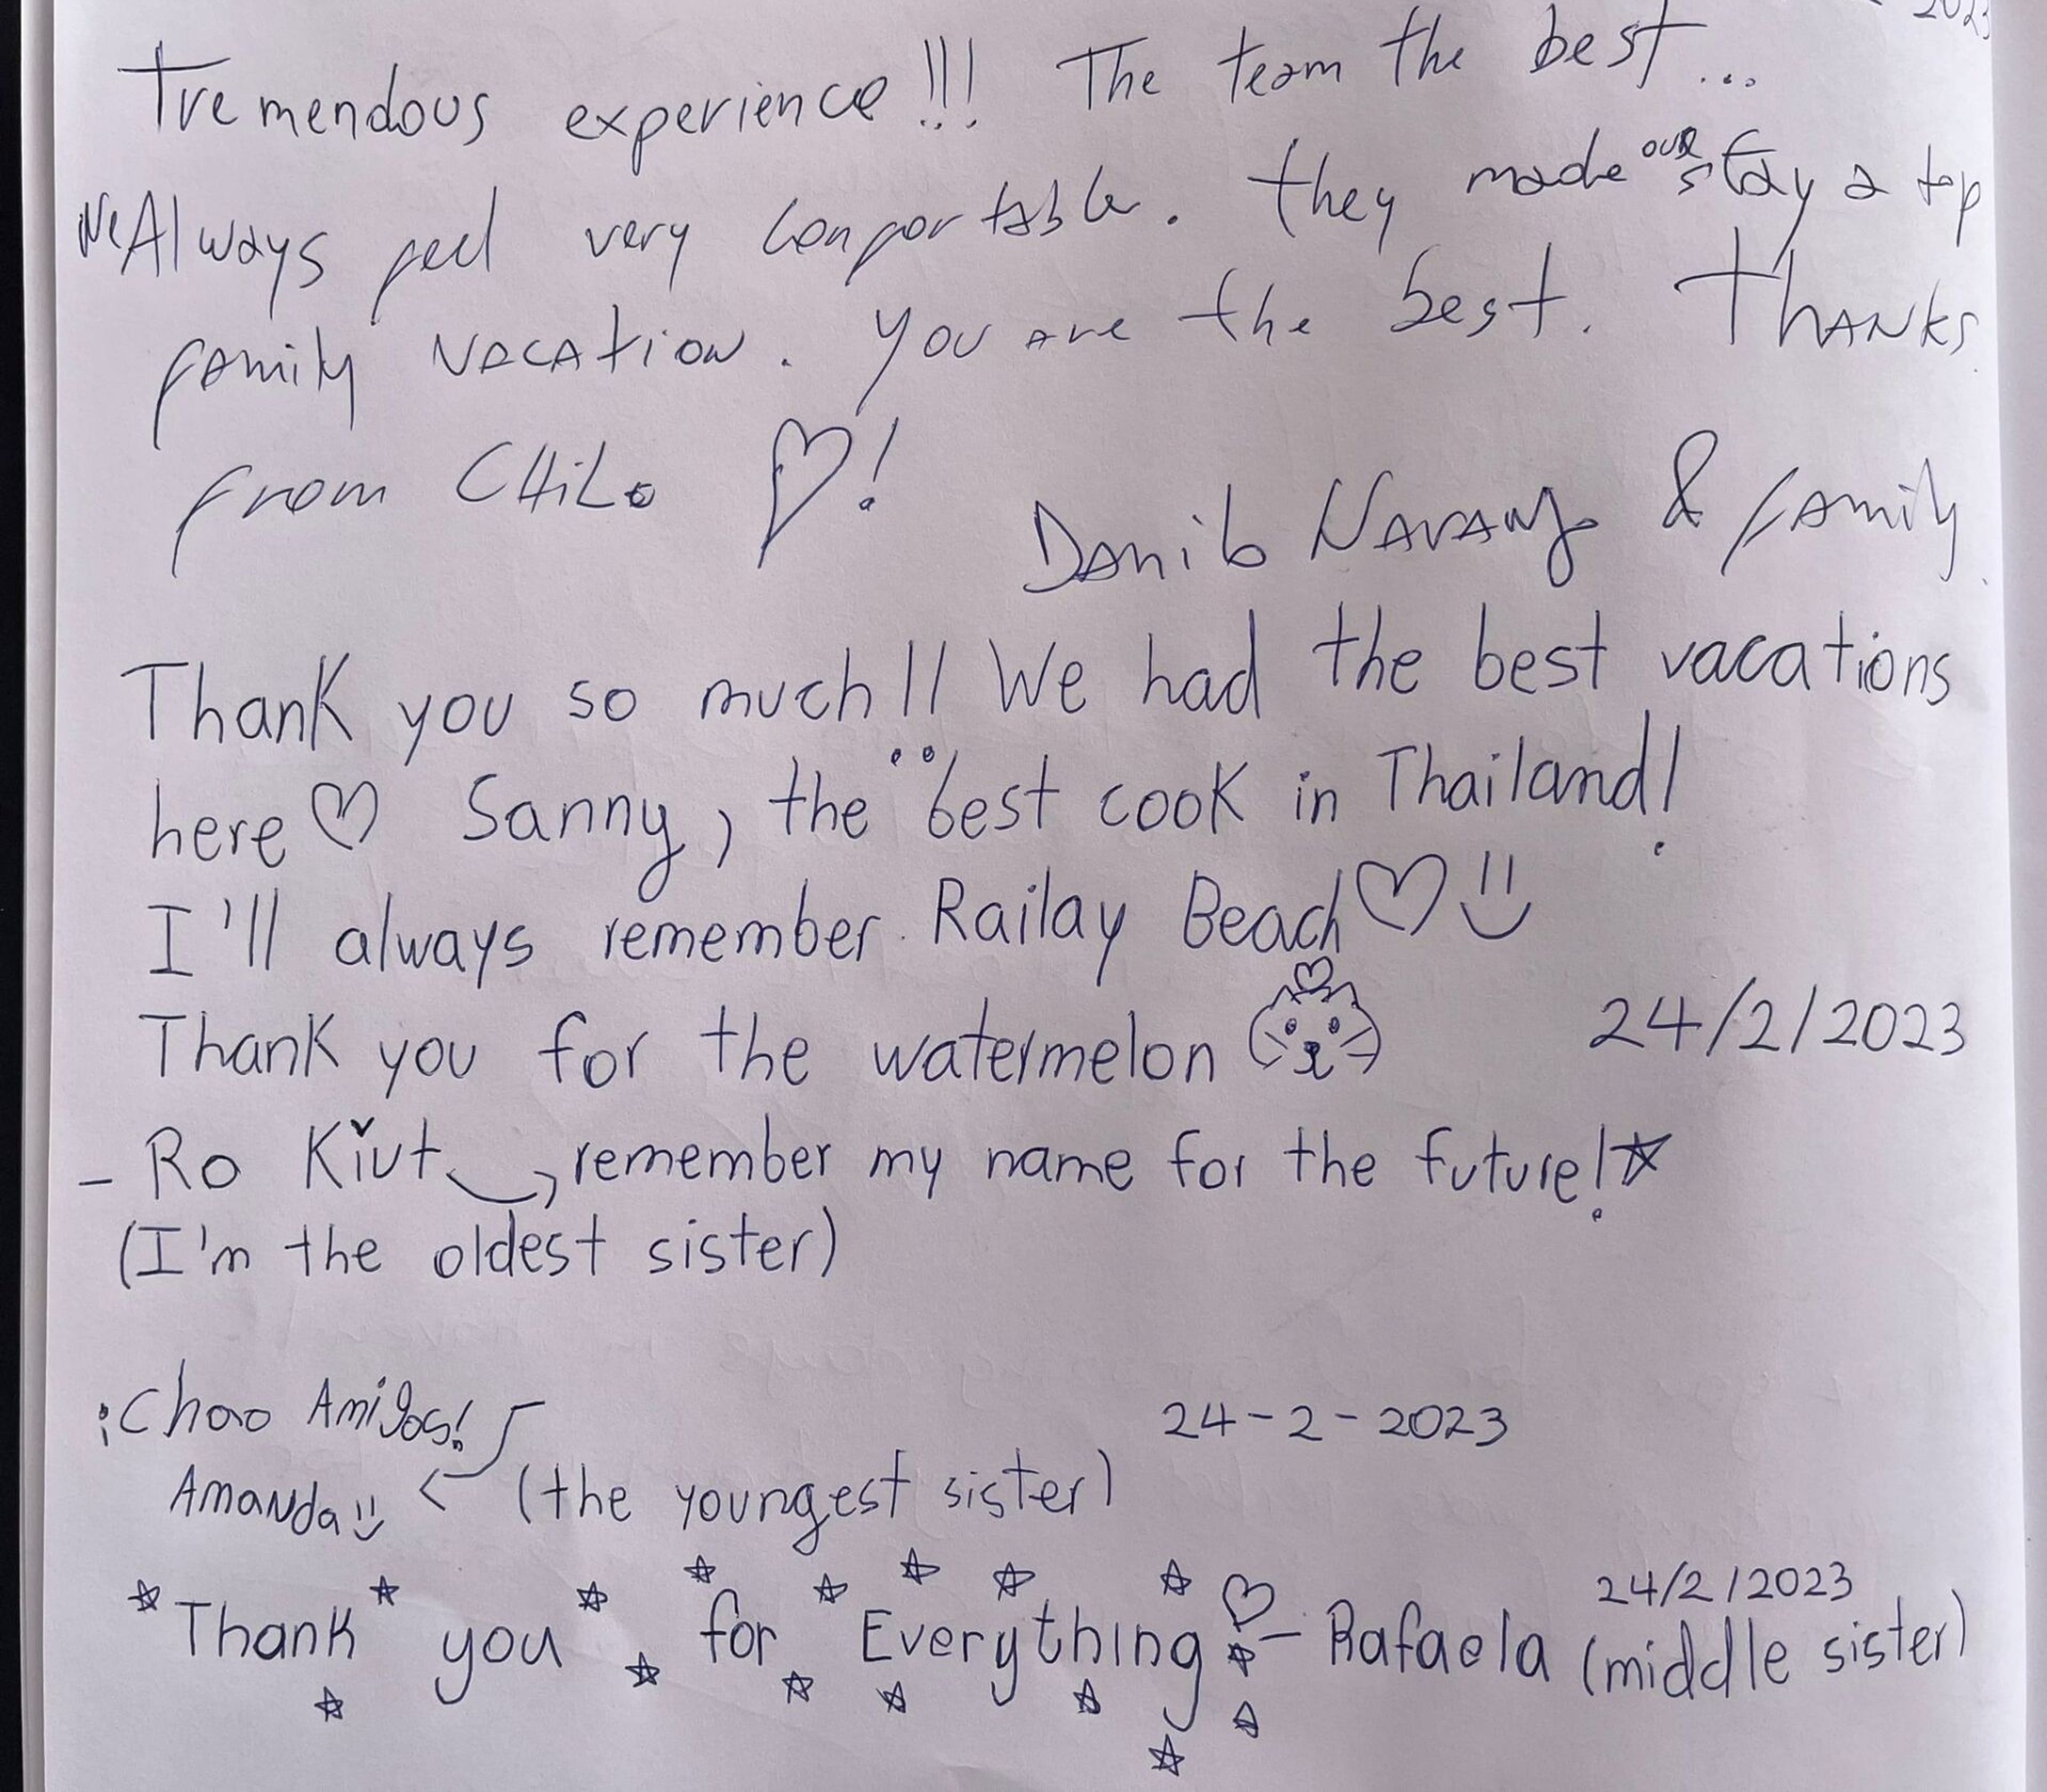 2023
Tremendous experience!!! The team the best...
We Always feel very confortable. they made our stay a top
family vacation. You are the best. Thanks
from CHiLe ♡!
& family
Thank you so much!! We had the best vacations
here ♡ Sanny, the best cook in Thailand!
I'll always remember Railay Beach ♡
Thank you for the watermelon
24/2/2023
- Ro Kiut, remember my name for the future! ☆
(I'm the oldest sister)
¡Chao Amigos!
24-2-2023
Amanda ← (the youngest sister)
24/2/2023
Thank you for Everything ♡ - Rafaela (middle sister)